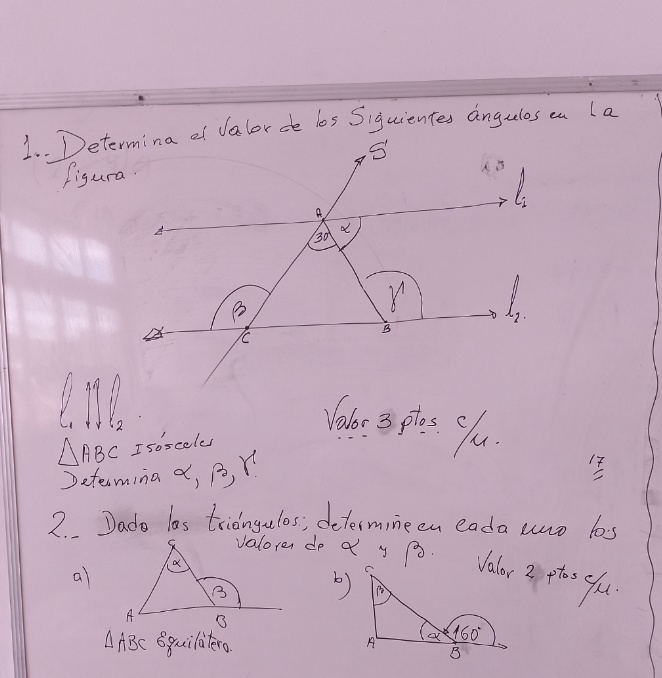 1.. Determina el Valor de los Siguientes ángulos en la
figura.
S
A
l₁
30 α
β
γ
l₂.
C
B
l₁ ⇈ l₂.
△ABC Isósceles
Valor 3 ptos c/u.
Determina α, β, γ.
17
2.- Dado los triángulos; determiñe en cada uno los
valores de α y β.
Valor 2 ptos c/u.
a)
C
α
β
A
B
△ABC Equilátero.
b)
C
β
A
α
160°
B